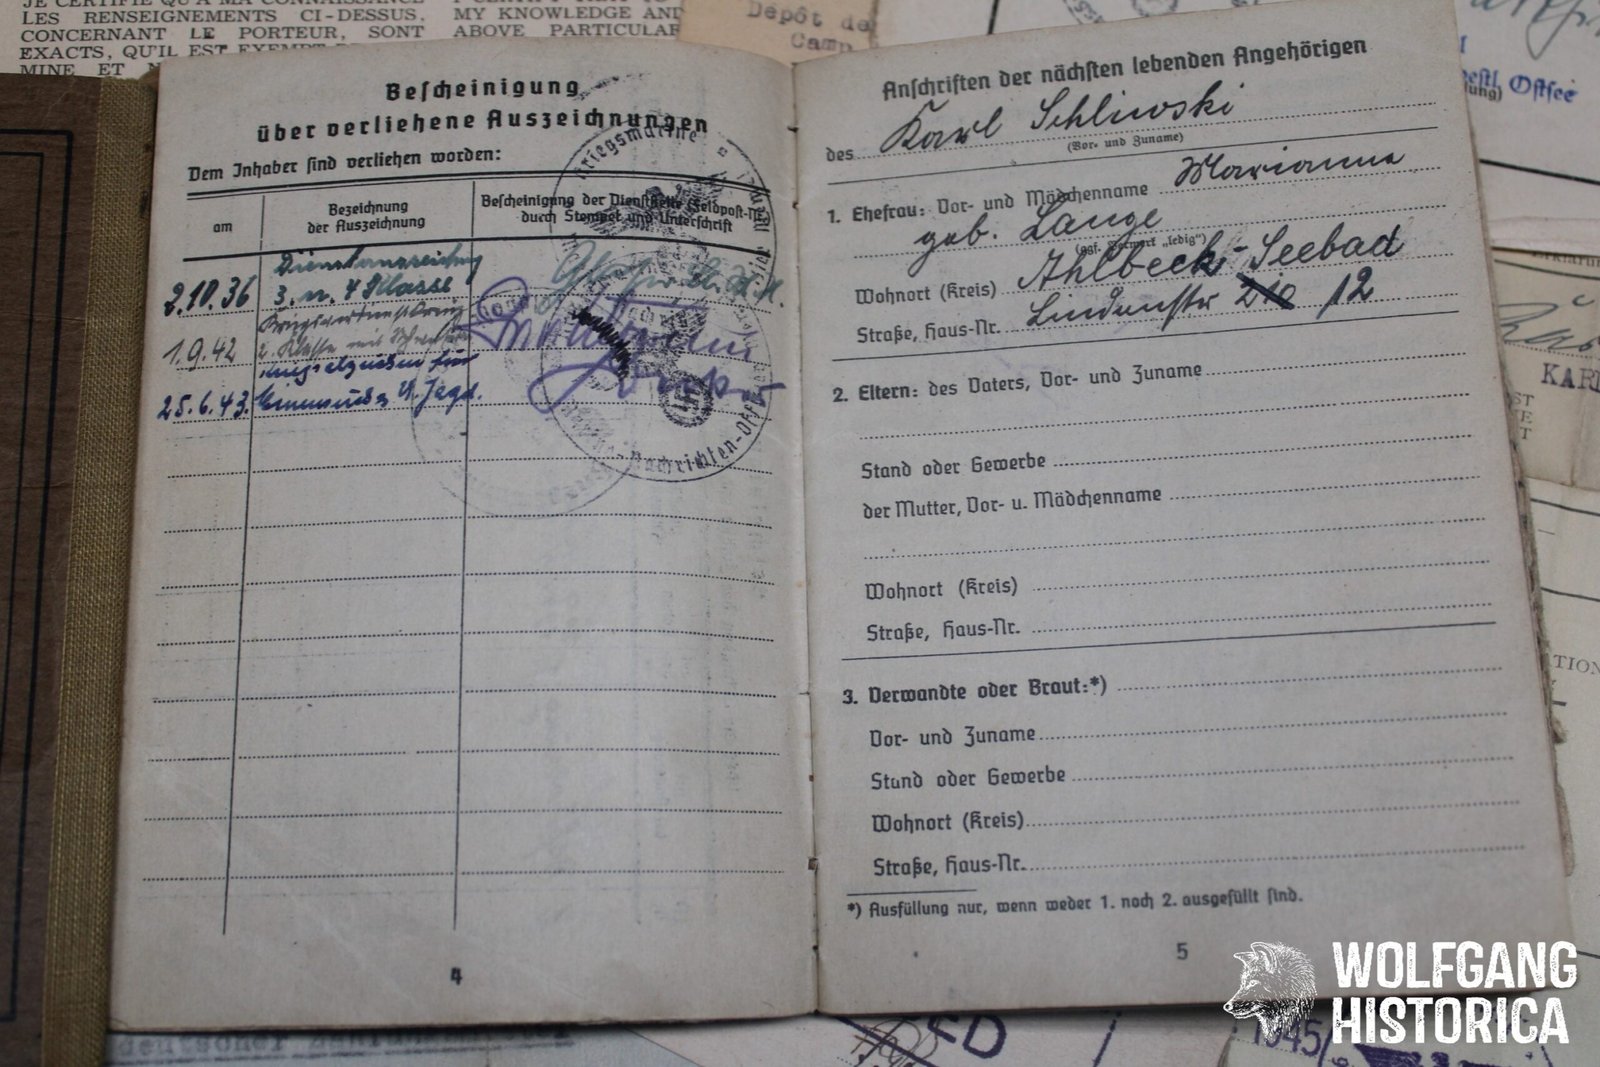 JE CERTIFIE QU'A MA CONNAISSANCE
LES RENSEIGNEMENTS CI-DESSUS,
CONCERNANT LE PORTEUR, SONT
EXACTS, QU'IL EST EXEMPT
MINE ET
MY KNOWLEDGE AND
ABOVE PARTICULAR
Depôt de
Camp
Ostsee
Bescheinigung
über verliehene Auszeichnungen
Dem Inhaber sind verliehen worden:
am
Bezeichnung
der Auszeichnung
Bescheinigung der Dienststelle (Feldpost-Nr.)
durch Stempel und Unterschrift
2.10.36
Dienstauszeichng
3. u. 4 Klasse
1.9.42
Kriegsverdienstkreuz
2. Klasse mit Schwertern
25.6.43.
U. Jagd.
Kriegsmarine
Nachrichten-Offi
4
Anschriften der nächsten lebenden Angehörigen
des Karl Schliwski
(Vor- und Zuname)
1. Ehefrau: Vor- und Mädchenname Marianna
geb. Lange
(ggf. Vermerk „ledig")
Wohnort (Kreis) Ahlbeck-Seebad
Straße, Haus-Nr. Lindenstr 12
2. Eltern: des Vaters, Vor- und Zuname
Stand oder Gewerbe
der Mutter, Vor- u. Mädchenname
Wohnort (Kreis)
Straße, Haus-Nr.
3. Verwandte oder Braut:*)
Vor- und Zuname
Stand oder Gewerbe
Wohnort (Kreis)
Straße, Haus-Nr.
*) Ausfüllung nur, wenn weder 1. noch 2. ausgefüllt sind.
5
1945
WOLFGANG
HISTORICA